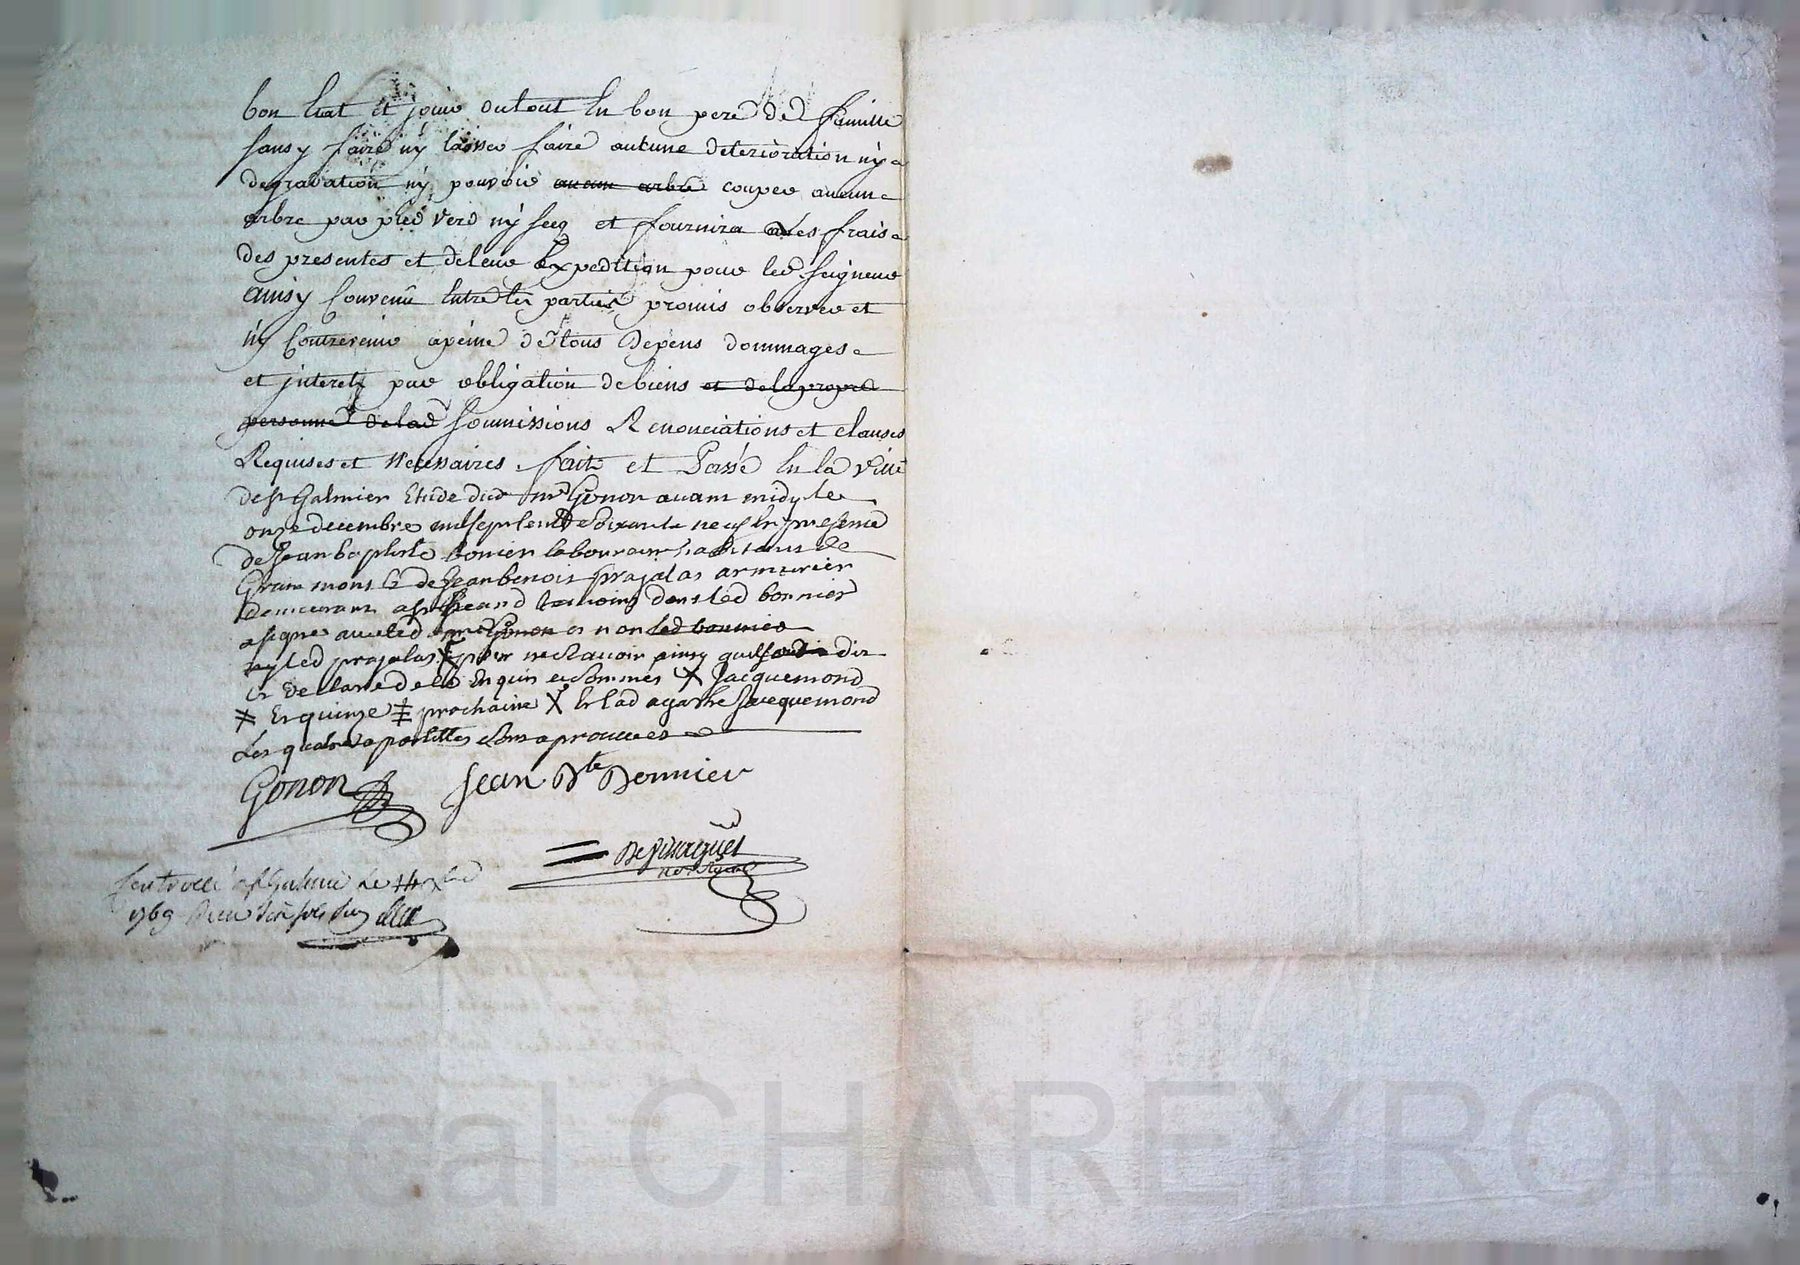 bon Etat et jouir dutout En bon pere de famille
sans y faire ny laisser faire aucune deterioration ny
degradation ny pouvoir aucun arbre couper aucun
arbre par pied verd ny secq et fournira les frais
des presentes et deleur Expedition pour led. seigneur
ainsy Convenû Entre les parties promis observer et
ny Contrevenir apeine de tous depens dommages
et jnterets par obligation de biens et de la propre
personne de lad soumissions Renonciations et clauses
Requises et Necessaires. fait et Passé En la ville
de st Galmier Etude dud me Gonon avant midy le
onze decembre mil sept cent soixante neuf En presence
de Jean baptiste bonnier laboureur habitant de
Grammont & de Jean benois prajalas armurier
demeurant a st temoins dont led bonnier
a signé avec led me Gonon et non led bonnier
ny led prajalas X pour ne scavoir ainsy quils ont dit
et declaré de ce Enquis et sommés X Jacquemond
Et quinze prochaine X Et lad agathe Jacquemond
Les quatre apostilles sons aprouvées
Gonon Jean Bte Bonnier
ner Royal
Controllé a st Galmier Le
1769 Recu sols
Pascal CHAREYRON